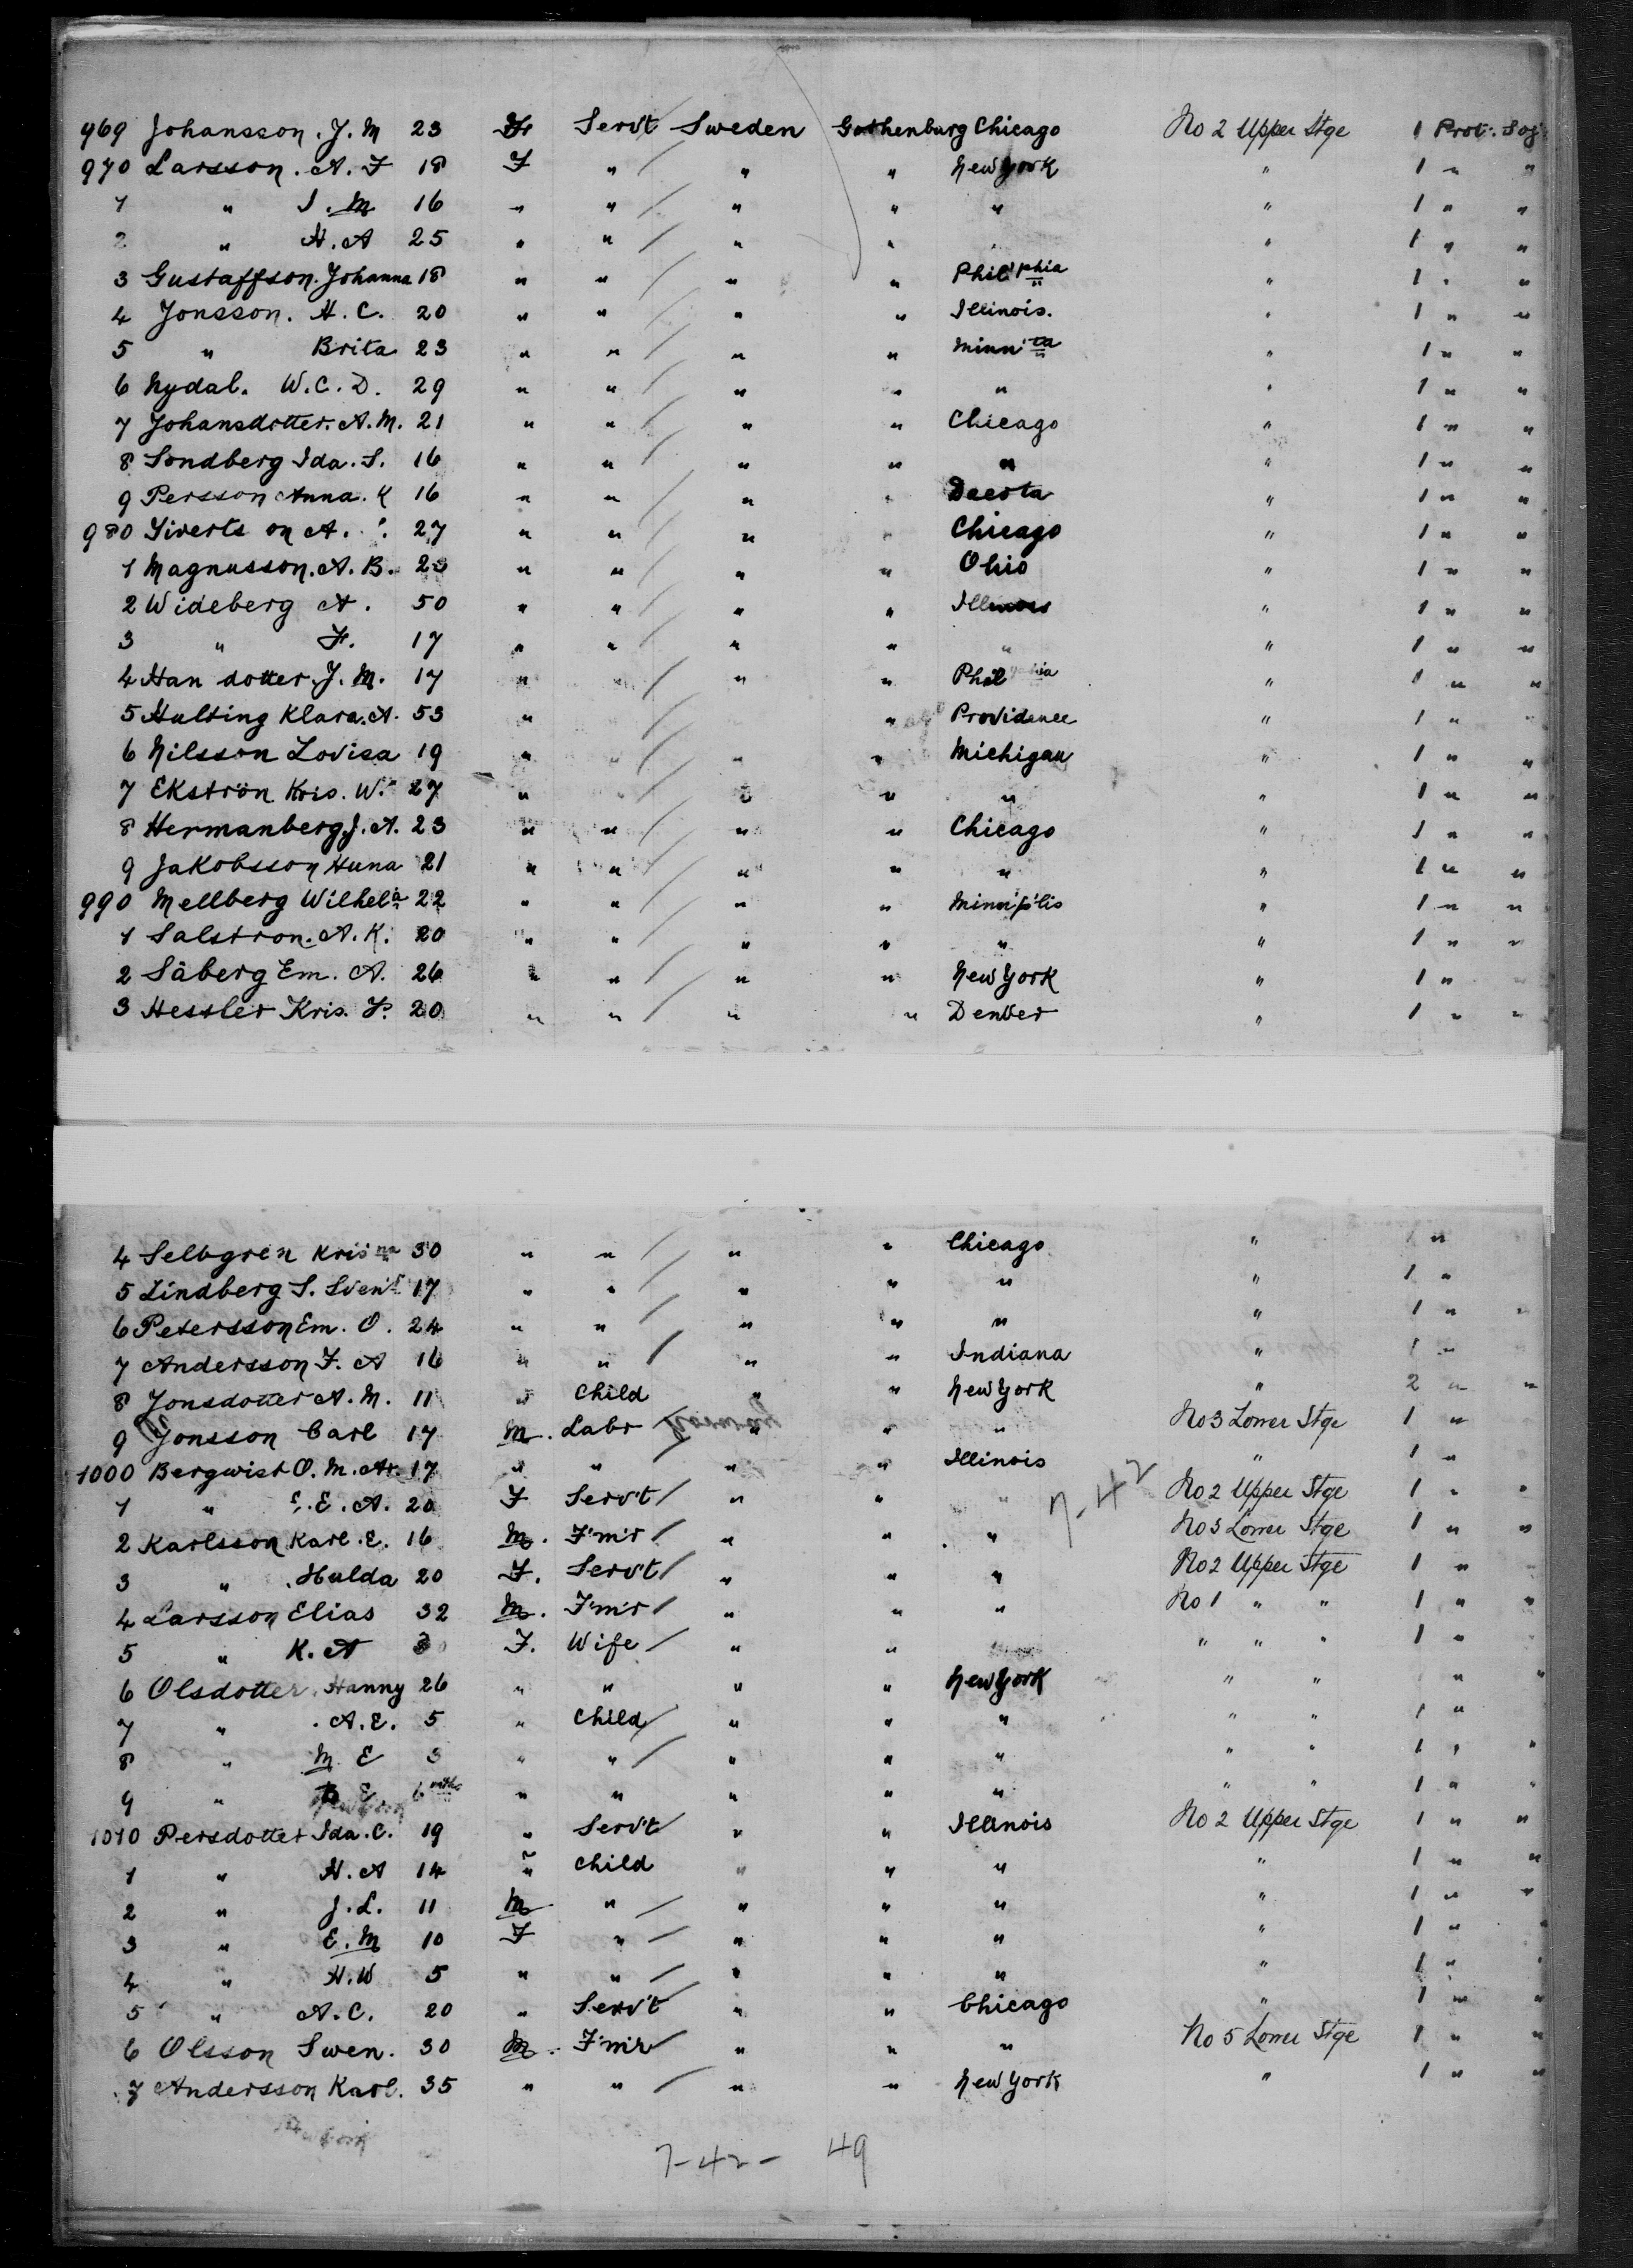 969 Johansson. J. M 23 F Servt Sweden Gothenburg Chicago No 2 Upper Stge 1 Prot. Soj
970 Larsson. A. F 18 F " " " New York " 1 " "
1 " I. M 16 " " " " " " 1 " "
2 " H. A 25 " " " " " 1 " "
3 Gustaffson. Johanna 18 " " " " Phil'phia " 1 " "
4 Jonsson. H. C. 20 " " " " Illinois. " 1 " "
5 " Brita 23 " " " " Minn'ta " 1 " "
6 Nydal. W. C. D. 29 " " " " " " 1 " "
7 Johansdotter. A. M. 21 " " " " Chicago " 1 " "
8 Sondberg Ida. S. 16 " " " " " " 1 " "
9 Persson Anna. K 16 " " " " Dacota " 1 " "
980 Siverts on A. 27 " " " " Chicago " 1 " "
1 Magnusson. A. B. " " " " Ohio " 1 " "
2 Wideberg A. 50 " " " " Illinois " 1 " "
3 " F. 17 " " " " " " 1 " "
4 Han dotter. J. M. 17 " " " " Phil " 1 " "
5 Hulting Klara. A. 53 " " Providence " 1 " "
6 Nilsson Lovisa 19 " " " " Michigan " 1 " "
7 Ekströn Kris. W. 27 " " " " " " 1 " "
8 Hermanberg J. A. 23 " " " " Chicago " 1 " "
9 Jakobsson Huna 21 " " " " " " 1 " "
990 Mellberg Wilhela 22 " " " " Minn'polis " 1 " "
1 Salstron. A. K. 20 " " " " " " 1 " "
2 Säberg Em. A. 26 " " " " New York " 1 "
3 Hessler Kris. 20 " " " " Denver " 1 " "
4 Selbgren Kris'na 30 " " " " Chicago " 1 "
5 Lindberg S. 17 " " " " " " 1 "
6 Petersson Em. O. 24 " " " " " " 1 " "
7 Andersson F. A 16 " " " " Indiana " 1 "
8 Jonsdotter A. M. 11 " Child " " New York " 2 " "
9 Jonsson Carl 17 M. Labr " " " No 3 Lower Stge 1 "
1000 Bergwist O. M. 17 " " " " Illinois " 1 "
1 " E. A. 20 F Serv't " " " No 2 Upper Stge 1 " "
2 Karlsson Karl. E. 16 M. F'm'r " " " No 3 Lower Stge 1 " "
3 " Hulda 20 F. Serv't " " " No 2 Upper Stge 1 "
4 Larsson Elias 32 M. F'm'r " " " No 1 " " 1 " "
5 " K. A F. Wife " " " " " 1 "
6 Olsdotter. Hanny 26 " " " " New York " " " "
7 " A. E. 5 " Child " " " " " 1 "
8 " M. E 3 " " " " " " " 1 " "
9 " E 6 mths " " " " " " " 1 " "
1010 Persdotter Ida. C. 19 " Serv't " " Illinois No 2 Upper Stge 1 " "
1 " H. A 14 " Child " " " " 1 " "
2 " J. L. 11 M " " " " " 1 " "
3 " E. M 10 F " " " " " 1 " "
4 " H. W 5 " " " " " " 1 " "
5 " A. C. 20 " Serv't " " Chicago " 1 " "
6 Olsson Swen. 30 M. F'm'r " " " No 5 Lower Stge 1 " "
7 Andersson Karl. 35 " " " " New York " 1 " "
7-42
7-42- 49